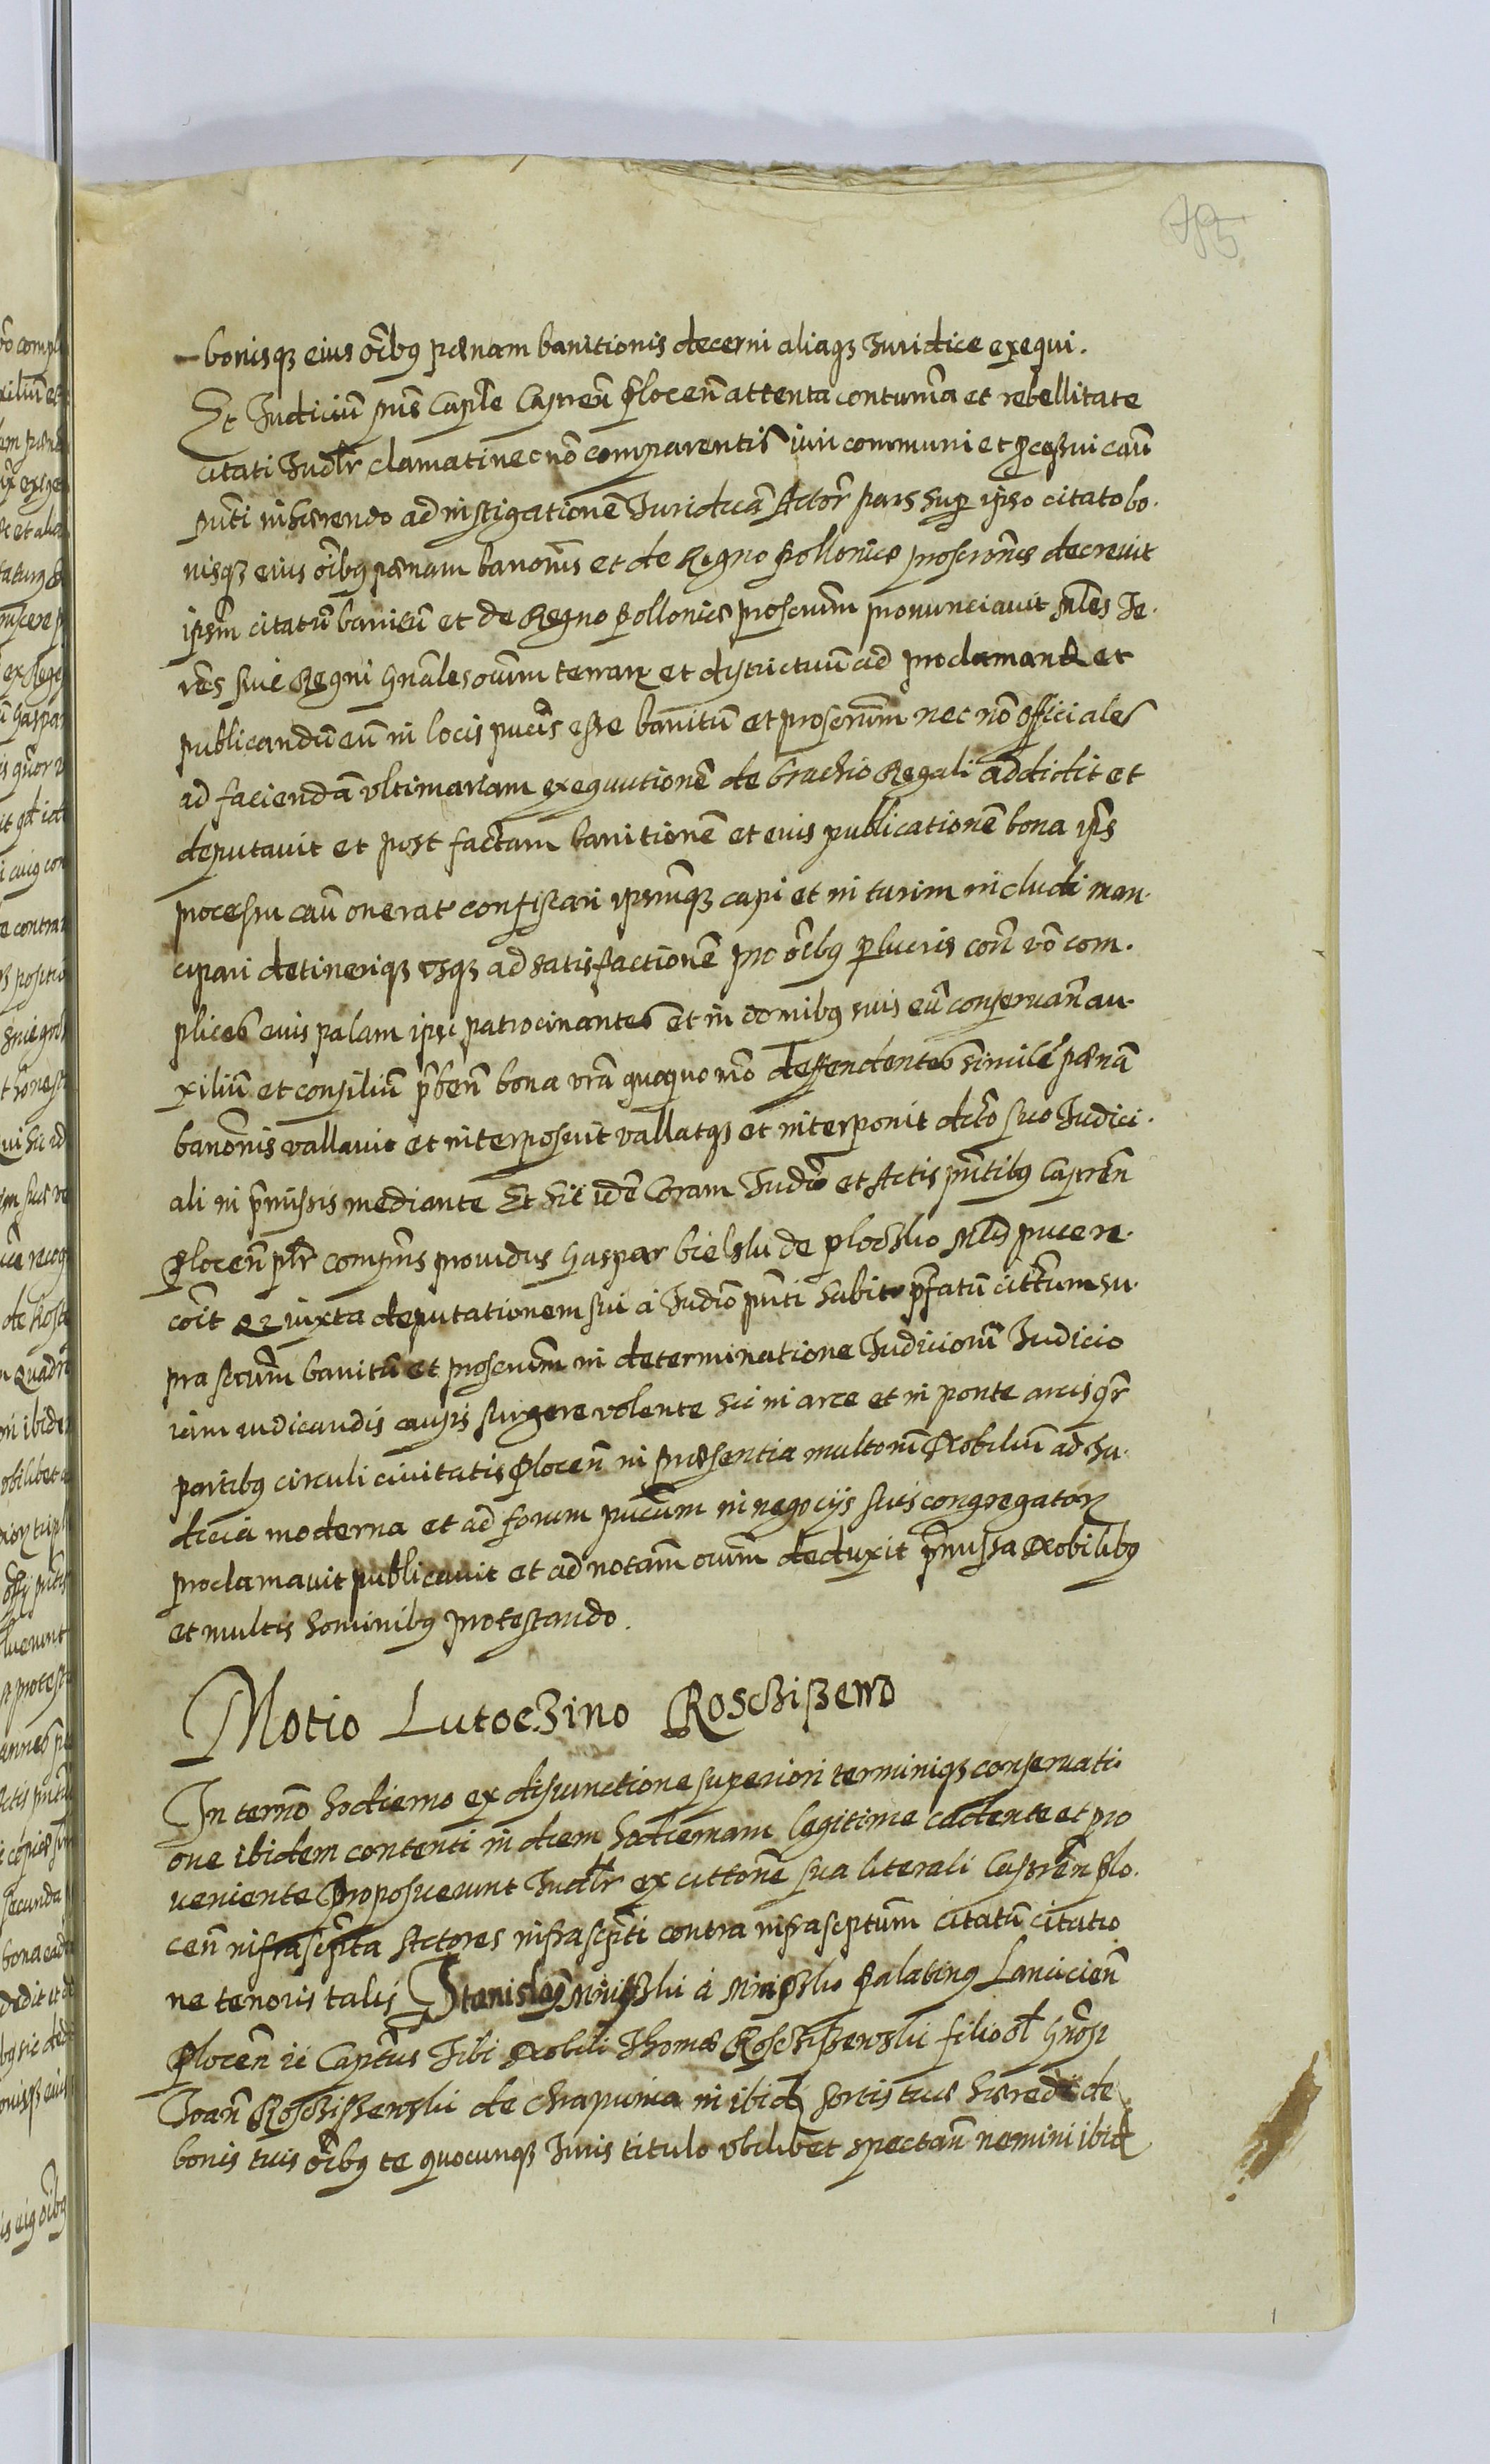 785
bonisqȝ eius oībꝫ pœnam banitionis decerni aliaqȝ Juridice exequi.
Et Judiciū pn̄s Capl̄e Castren̄ Plocen̄ attenta contum̄a et rebellitate
citati Judl̄r clamati nec nō comparentis iuri communi et ꝑcessui caūs
pn̄ti inhærendo ad instigationē Juridicā Actor̄ pars sup̱ ipso citato bo-
nisqȝ eius oībꝫ pœnam banōnis et de Regno Pollonico proscrōnis decreuit
ipsm̄ citatū banitū et de Regno Pollonico proscrūm pronunciauit M̄les Te-
rr̄es siue Regni Gn̄ales ouīm terrarꝫ et districtuū ad proclamand et
publicandū eū in locis pucīs esse banitū et proscrūm nec nō officiales
ad faciendā vltimariam exequutionē de brachio Regali addidit et
deputauit et post factam banitionē et eius publicationē bona ip̄s
processu caūs onerat confiscari ipsumqȝ capi et in turim includi man-
cipari detineriqȝ vsqȝ ad satisfactionē pro oībꝫ ꝑlucris con̄ vō com-
plices eius palam ipsi patrocinantes et in domibꝫ suis eū conseruan̄ au-
xiliū et consiliū p̄ben̄ bona vrā quoquo mō deffendentes simile pœnā
banōnis vallauit et interposuit vallatqȝ et interponit dctō suo Judici-
ali in p̄missis mediante Et hic idē Coram Judīo et Actis pn̄tibꝫ Castren̄
Plocen̄ pl̄r compn̄s prouidus Gaspar bielski de ploczko Mlīs puce re-
coīt Qꝫ iuxta deputationem sui à Judīo pn̄ti habitā p̄fatū cittūm su-
pra scrūm banitū et proscrūm in determinatione Judiciorū Judicio
iam iudicandis causis surgere volente hic in arce et in ponte arcis qr̄
partibꝫ circuli ciuitatis Plocen̄ in præsentia multorū Nobiliū ad Ju-
dicia moderna et ad forum pucūm in negocijs suis congregatorꝫ
proclamauit publicauit et ad notam̄ ouīm deduxit p̄missa Nobilibꝫ
et multis hominibꝫ protestando.
Motio Lutoczino Rosczißewo
In termō hodierno ex disiunctione superiori terminiqȝ conseruati-
one ibidem contenti in diem hodiernam legitime cadente et pro
ueniente Proposuerunt Judl̄r ex cittōne sua literali Castren̄ Plo-
cen̄ infrascrip̄ta Actores infrascrip̄ti contra infrascptūm citatū citatio
ne tenoris talis Stanislaꝫ Miński à Minsko Palatinꝫ Lancicien̄
Plocen̄ ꝛc Captn̄s Tibi Nobili Thomæ Rosczißewski filio ol̄ Gn̄osi
Joan̄ Rosczißewski de Chrapunia in ibid sortis tuæ hæredi de
bonis tuis oībꝫ te quocunqȝ Juris titulo vbilibet spectan̄ nemini ibid